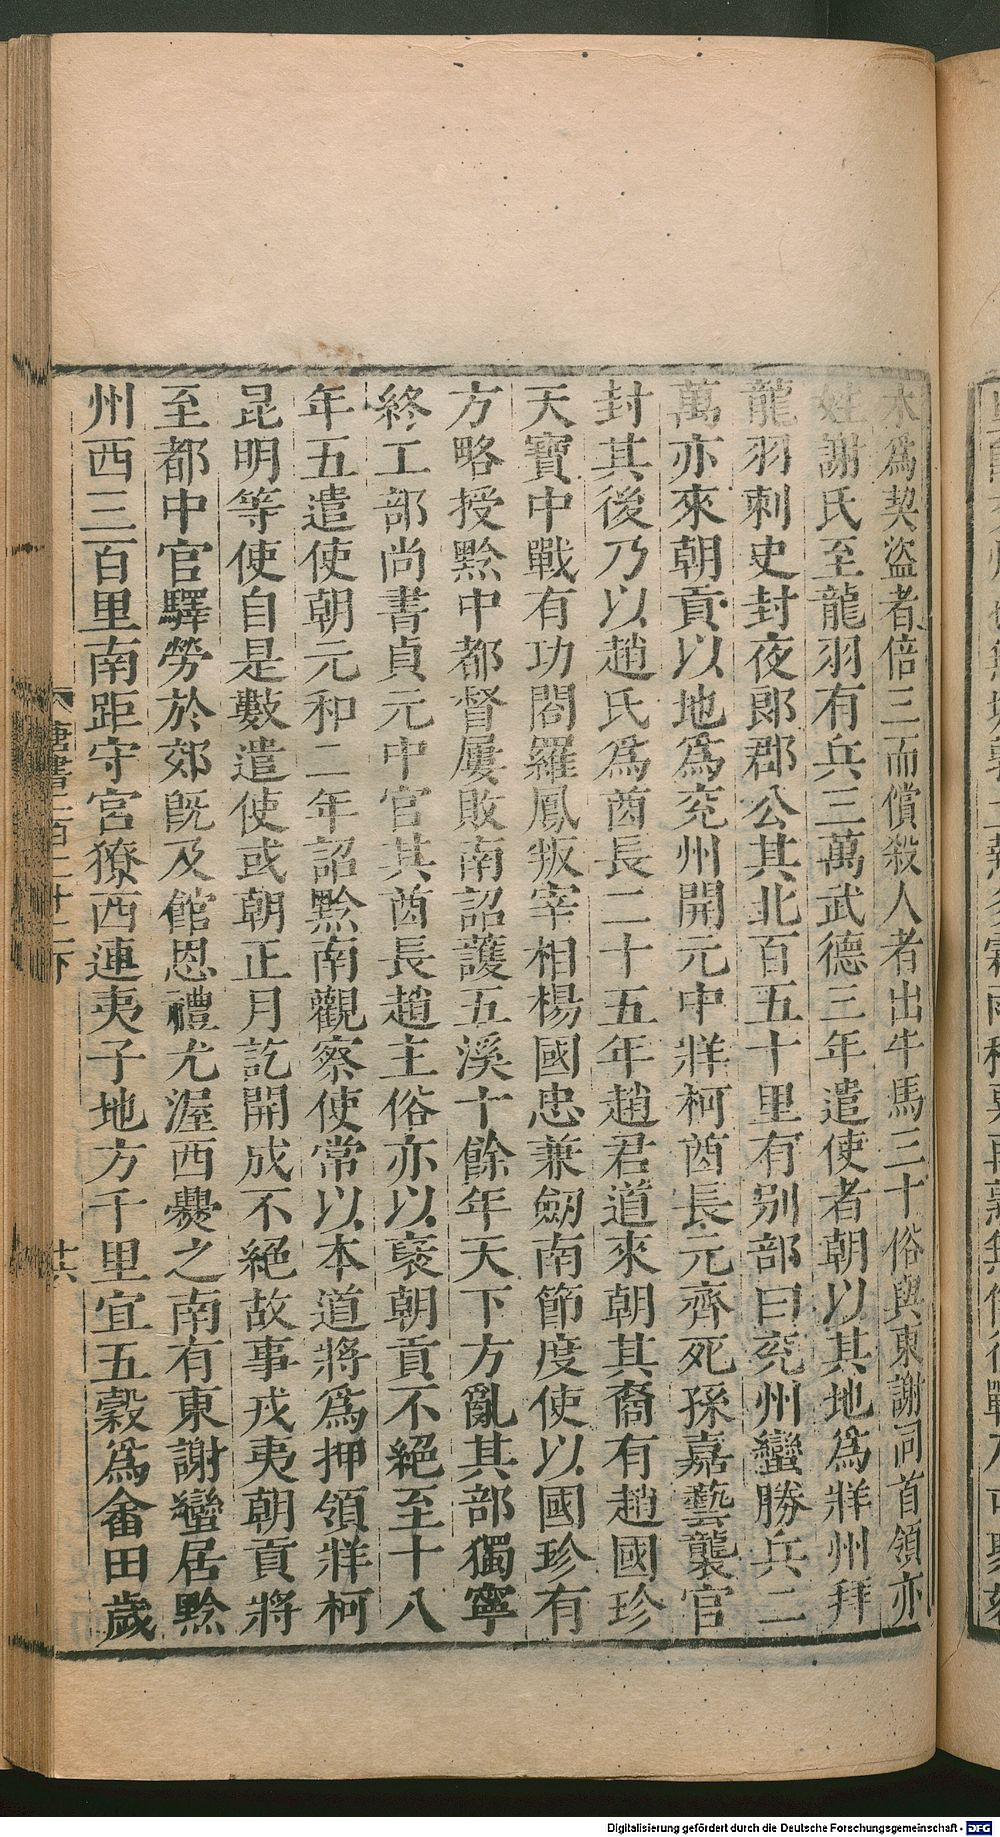 木爲契盜者倍三而償殺人者出牛馬三十俗與東謝同首領亦
姓謝氏至龍羽有兵三萬武德三年遣使者朝以其地爲牂州拜
龍羽刺史封夜郎郡公其北百五十里有別部曰兖州蠻勝兵二
萬亦來朝貢以地爲兖州開元中牂柯酋長元齊死孫嘉藝襲官
封其後乃以趙氏爲酋長二十五年趙君道來朝其裔有趙國珍
天寶中戰有功閤羅鳳叛宰相楊國忠兼劒南節度使以國珍有
方略授黔中都督屢敗南詔護五溪十餘年天下方亂其部獨寧
終工部尚書貞元中官其酋長趙主俗亦以褒朝貢不絕至十八
年五遣使朝元和二年詔黔南觀察使常以本道將爲押領牂柯
昆明等使自是數遣使或朝正月訖開成不絕故事戎夷朝貢將
至都中官驛勞於郊旣及館恩禮尤渥西爨之南有東謝蠻居黔
州西三百里南距守宮獠西連夷子地方千里宜五穀爲畬田歲
唐書二百二十二下
廿六
Digitalisierung gefördert durch die Deutsche Forschungsgemeinschaft - DFG